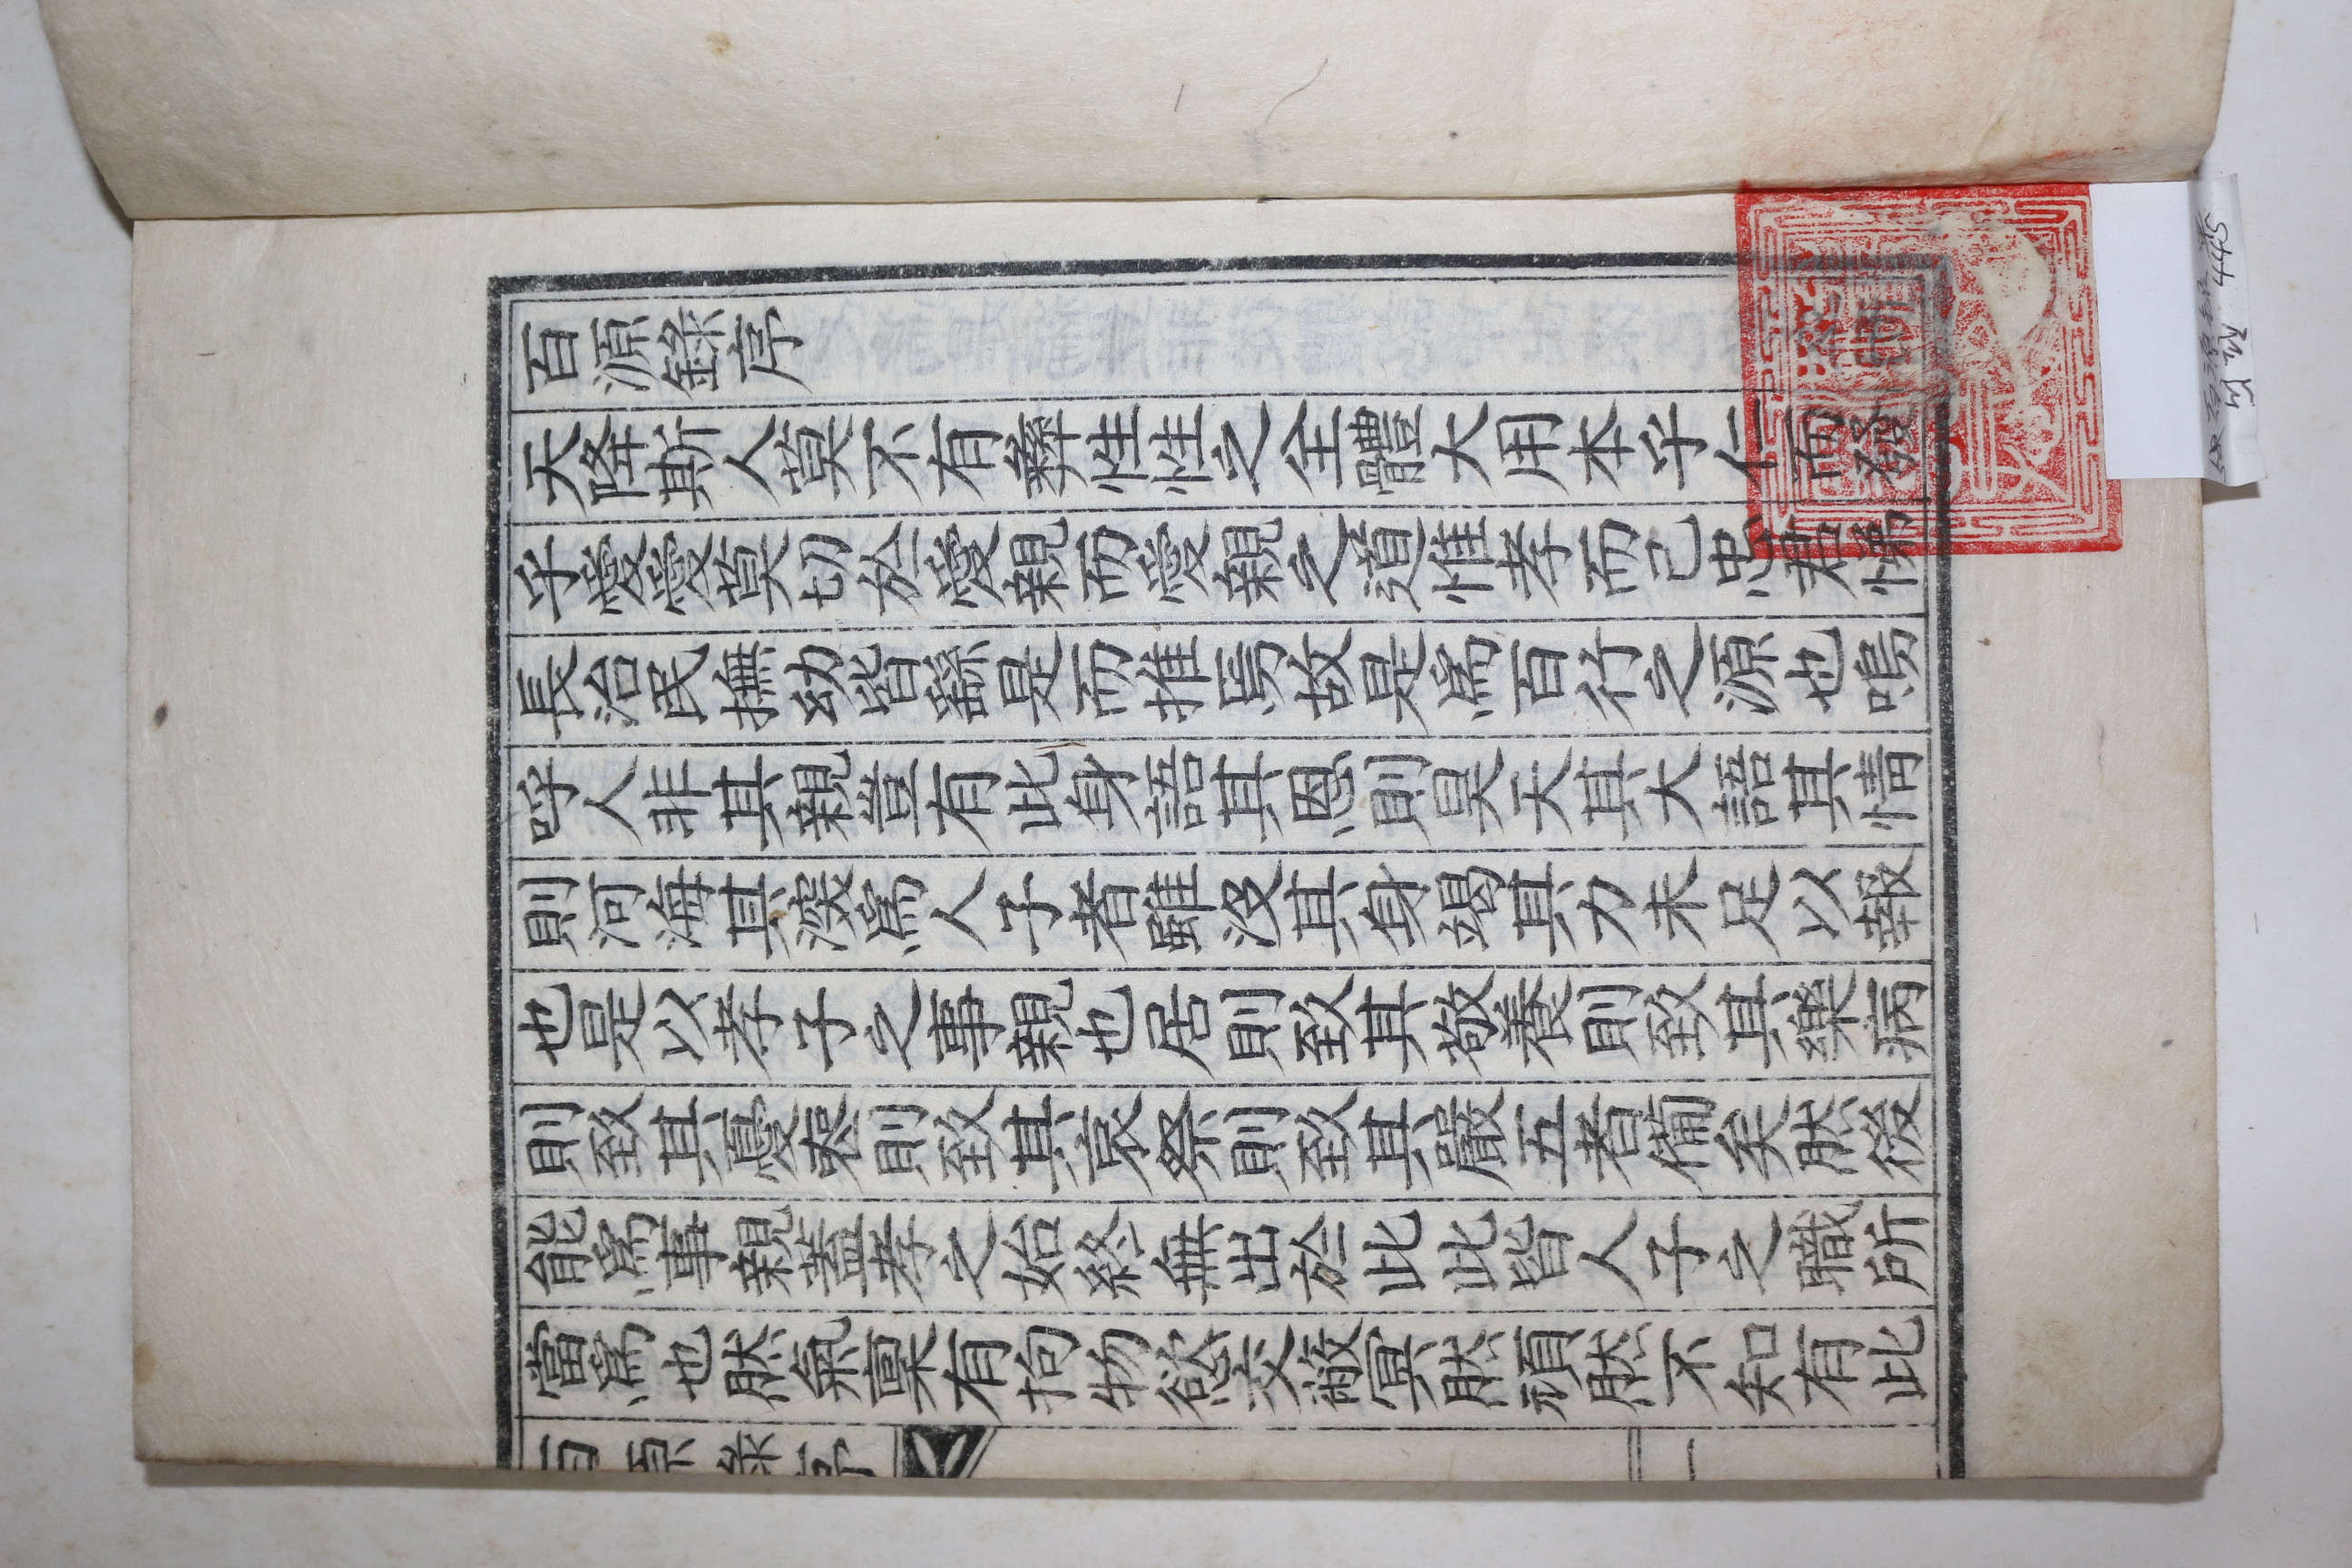 百源錄序
天降斯人莫不有彝性性之全體大用本乎仁而發
乎愛愛莫切於愛親而愛親之道惟孝而已忠君悌
長治民撫幼皆繇是而推焉故是爲百行之源也嗚
呼人非其親豈有此身語其恩則昊天其大語其情
則河海其深爲人子者雖沒其身竭其力未足以報
也是以孝子之事親也居則致其敬養則致其樂病
則致其憂喪則致其哀祭則致其嚴五者備矣肰後
能爲事親蓋孝之始終無出於此此皆人子之職所
當爲也肰氣稟有拘物慾交蔽冥肰頑肰不知有此
百源錄序
一